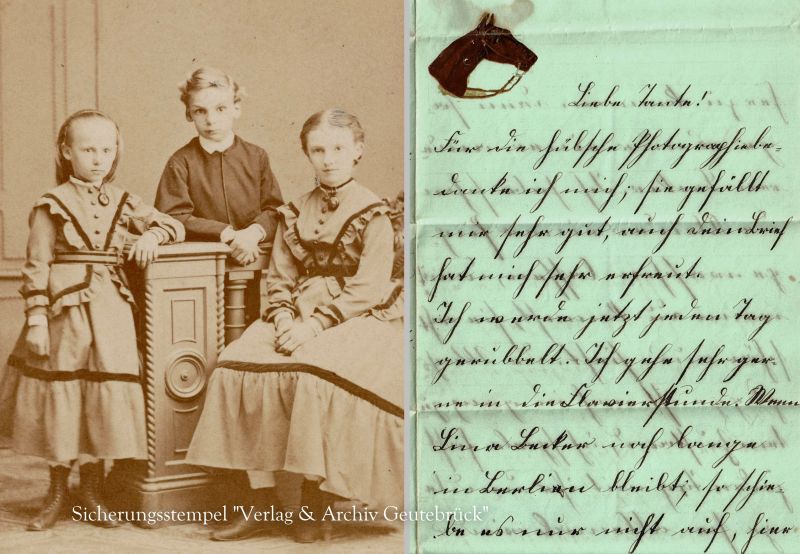 Liebe Tante!
Für die hübsche Photographie be-
danke ich mich; sie gefällt
mir sehr gut, auch dein Brief
hat mich sehr erfreut.
Ich werde jetzt jeden Tag
gerubbelt. Ich gehe sehr ger-
ne in die Clavierstunde. Wenn
Lina Becker noch lange
in Berlien bleibt, so schie-
be es nur nicht auf, hier
Sicherungsstempel "Verlag & Archiv Geutebrück"